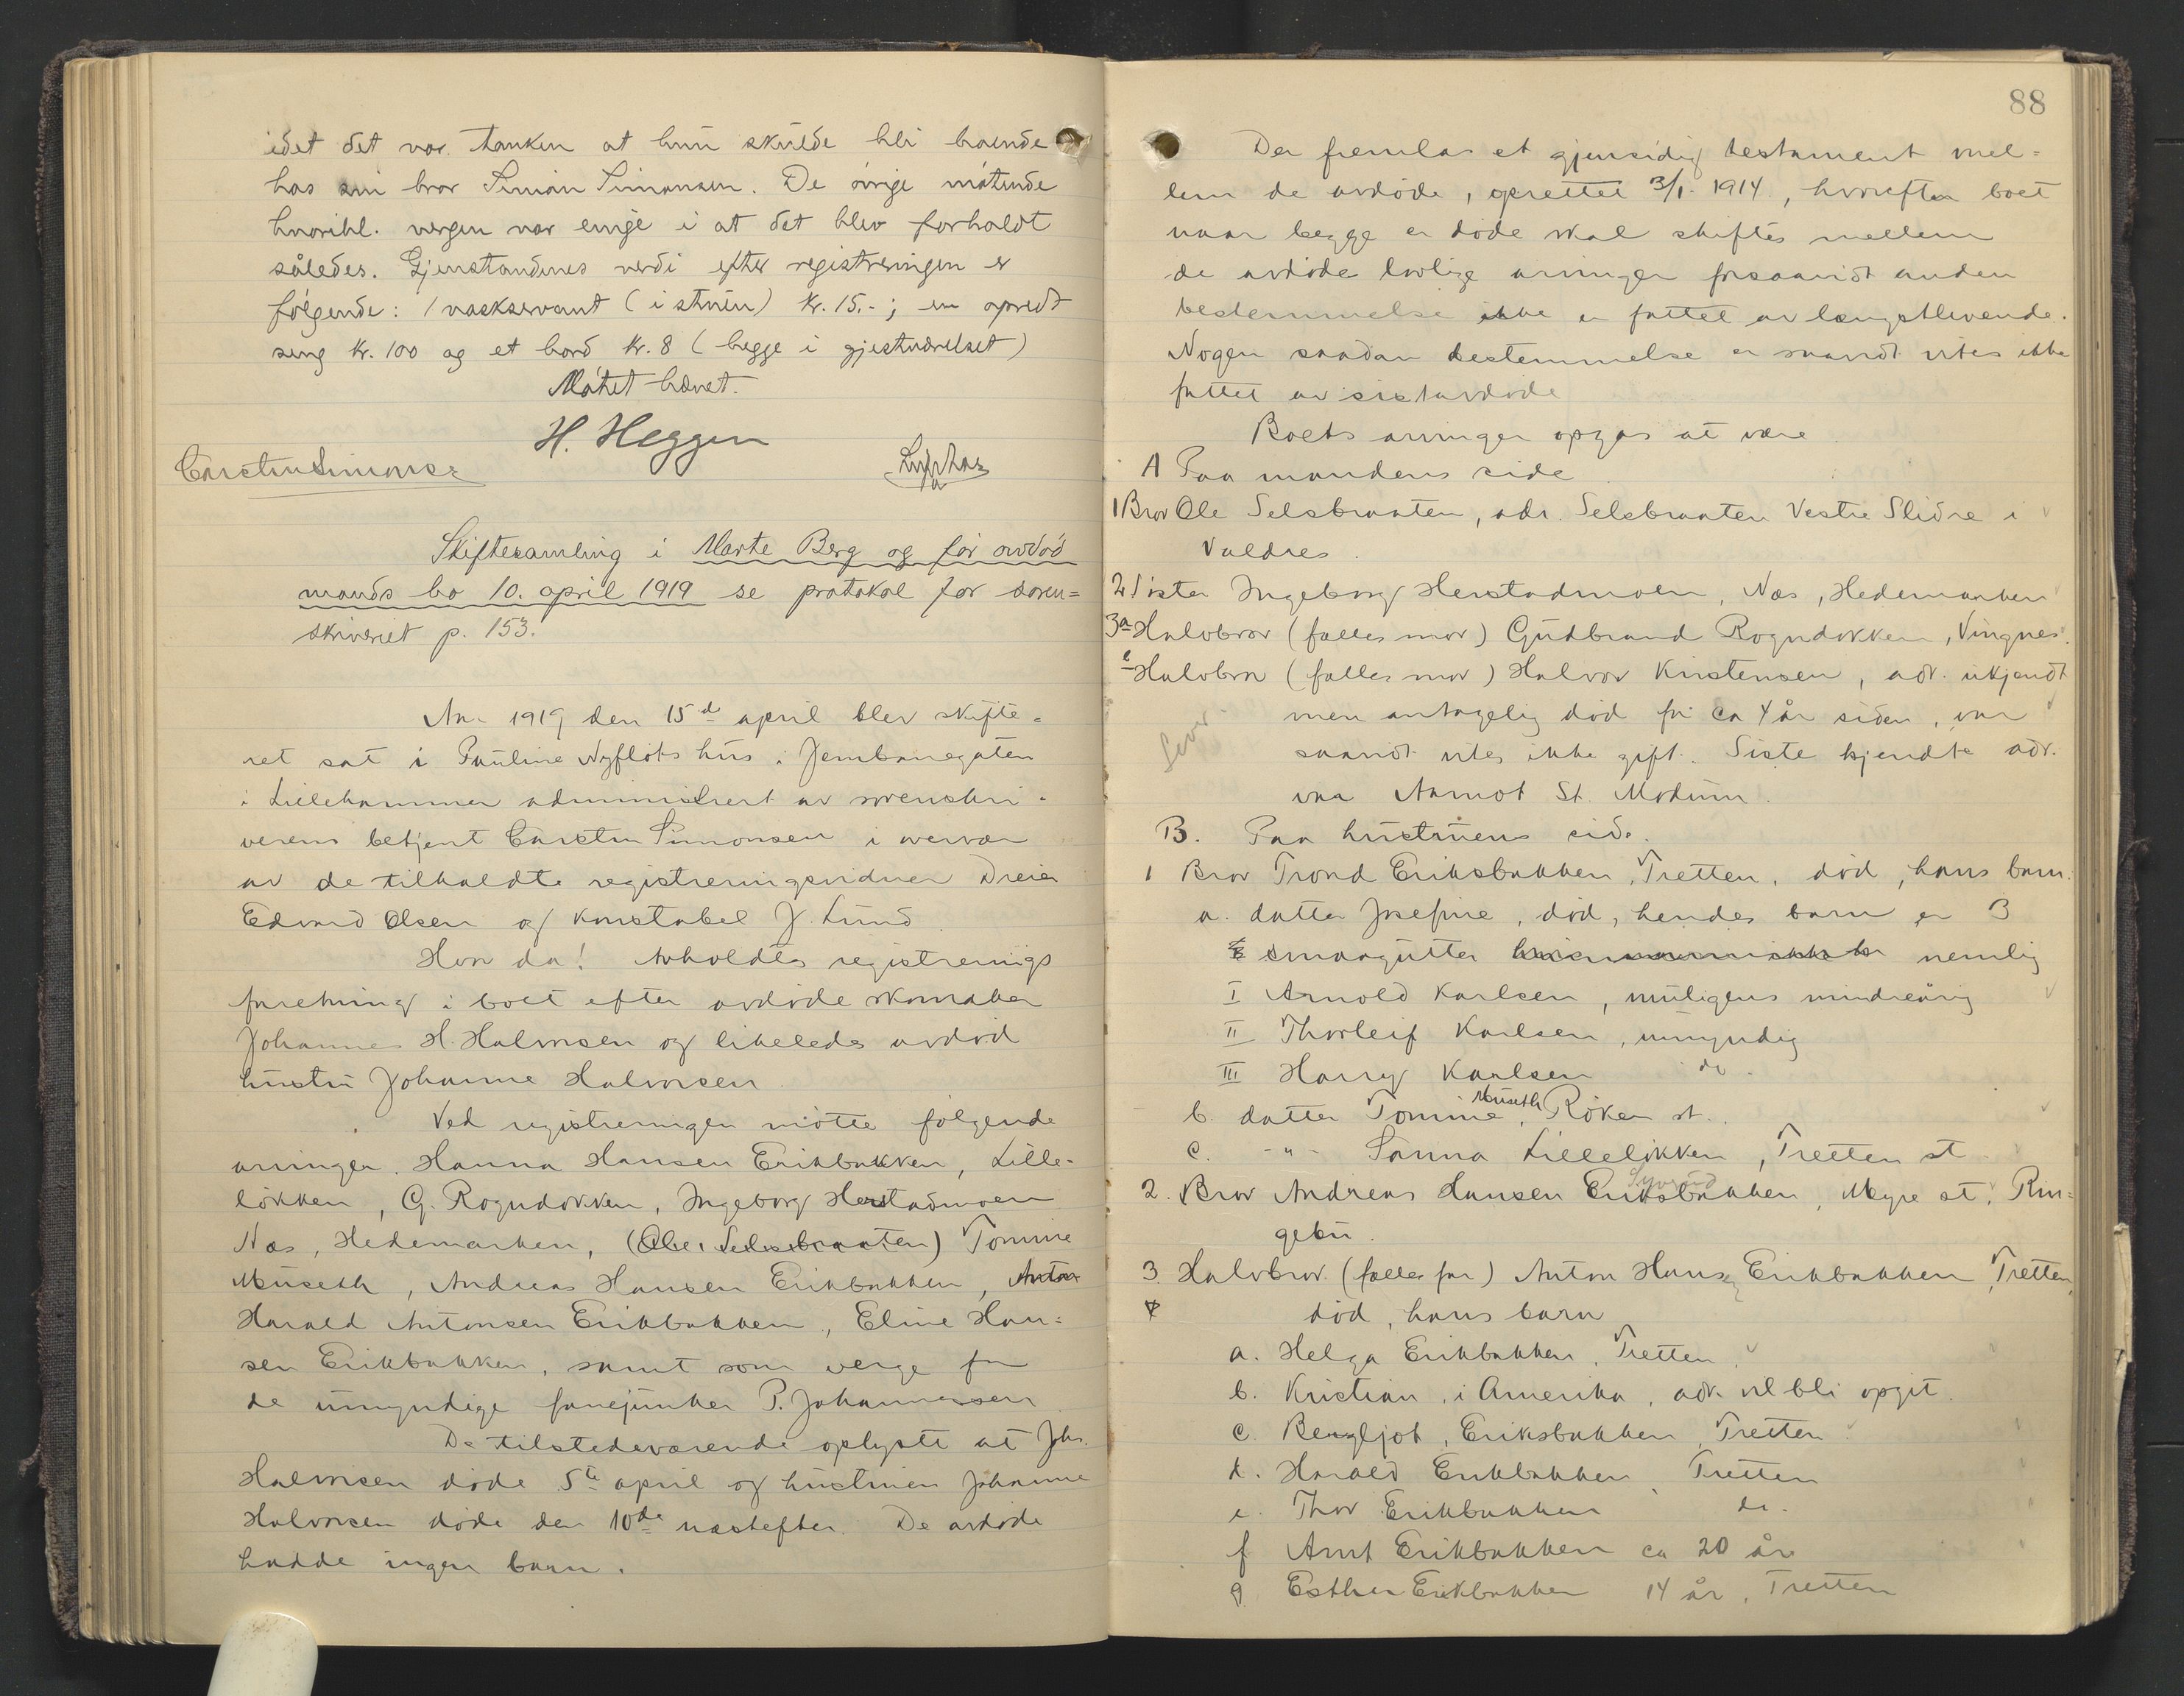 idet det var tanken at hun skulde bli boende
hos sin bror Simon Simonsen. De øvrige møtende
hvoribl. vergen var enige i at det blev forholdt
således. Gjenstandenes verdi efter registreringen er
følgende: 1 vaskservant (i stuen) kr. 15.-; en opredt
seng kr. 100 og et bord kr. 8 (begge i gjestværelset)
Møtet hævet.
H. Heggen
Carsten Simonsen
Skiftesamling i Marte Berg og før avdød
mands bo 10. april 1919 se protokol for soren=
skriveriet p. 153.
Aar 1919 den 15de april blev skifte=
ret sat i Pauline Nyflots hus i Jernbanegaten
i Lillehammer administrert av sorenskri=
verens betjent Carsten Simonsen i overvær
av de tilkaldte registreringsvidner Dreier
Edvard Olsen og konstabel J. Lund.
Hvor da! Avholdtes registrerings
forretning i boet efter avdøde skomaker
Johannes H. Halvorsen og likeledes avdød
hustru Johanne Halvorsen.
Ved registreringen møtte følgende
arvinger. Hanna Hansen Erikbakken, Lille-
løkken, G. Rogndokken, Ingeborg Herstadmoen
Nes, Hedemarken, (Ole Selsbraaten) Tomine
Museth, Andreas Hansen Erikbakken, Anton
Harald Antonsen Erikbakken, Eline Han=
sen Erikbakken, samt som verge for
de umyndige fanejunker P. Johannessen
De tilstedeværende oplyste at Johs.
Halvorsen døde 5te april og hustruen Johanne
Halvorsen døde den 10de næstefter. De avdøde
hadde ingen barn.
88
Der fremlas et gjensidig testament mel=
lem de avdøde, oprettet 3/1 1914, hvorefter boet
naar begge er døde skal skiftes mellem
de avdødes lovlige arvinger forsaavidt anden
bestemmelse ikke er fattet av længstlevende.
Nogen saadan bestemmelse er saavidt vites ikke
fattet av sistavdøde
Boets arvinger opgas at være
A Paa mandens side
1 Bror Ole Selsbraaten, adr. Selsbraaten Vestre Slidre i
Valdres.
2 Søster Ingeborg Herstadmoen, Nes, Hedemarken
3a Halvbror (felles mor) Gudbrand Rogndokken, Vingnes.
b Halvbror (felles mor) Halvor Kristensen, adr. ukjendt
men antagelig død for ca 4 år siden, var
lever
saavidt vites ikke gift. Siste kjendte adr.
var Aamot St. Modum.
B. Paa hustruens side.
1 Bror Trond Eriksbakken, Tretten, død, hans barn:
a. datter Josefine, død, hendes barn er 3
smaagutter nemlig
I Arnold Karlsen, muligens mindreårig
II Thorleif Karlsen, umyndig
III Harry Karlsen do.
b. datter Tomine Museth, Röken st.
c. -"- Sanna Lilleløkken, Tretten st
2. Bror Andreas Hansen Eriksbakken, Myre st., Rin=
gebu.
3 Halvbror (felles far) Anton Hansen Erikbakken, Tretten,
død, hans barn
a. Helga Erikbakken, Tretten.
b. Kristian, i Amerika, adr. vil bli opgit.
c. Bergljot, Eriksbakken, Tretten
d. Harald Erikbakken, Tretten
e. Thor Erikbakken do.
f Arnt Erikbakken ca 20 år
g Esther Erikbakken 14 år, Tretten